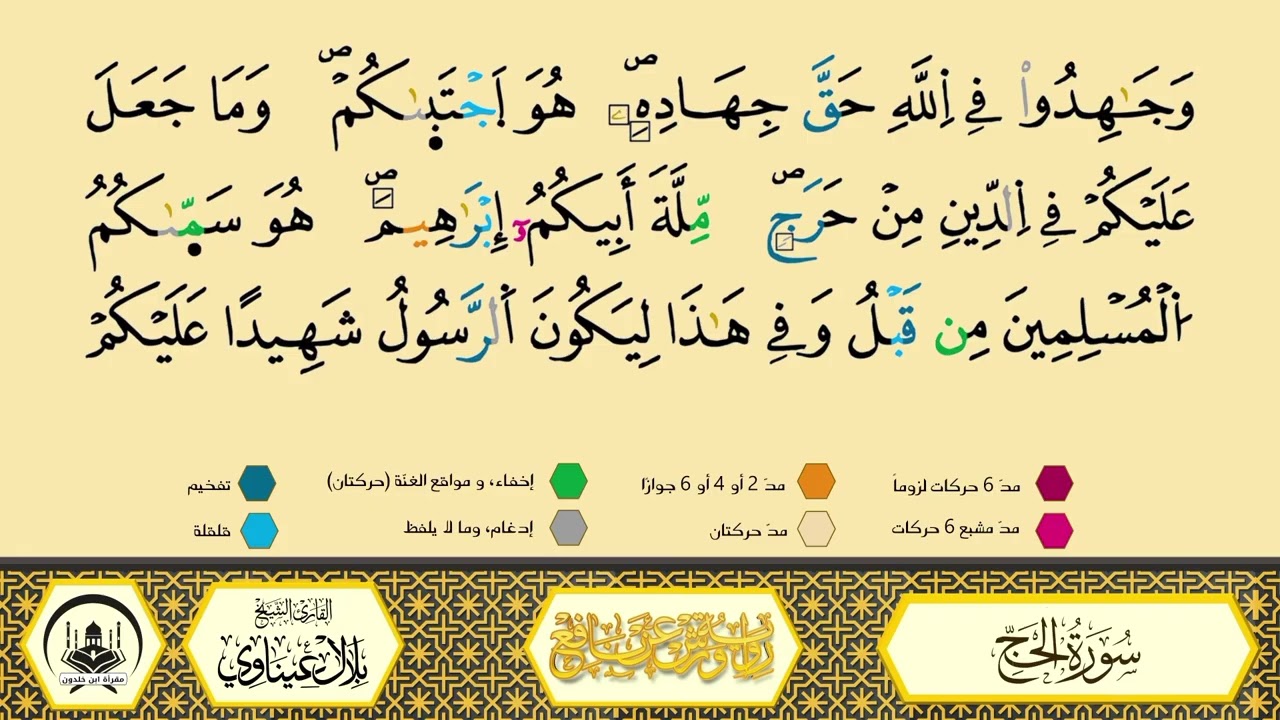 وَجَٰهِدُواْ فِے اِ۬للَّهِ حَقَّ جِهَادِهِۦۖ هُوَ اَجْتَب۪ىٰكُمْۖ وَمَا جَعَلَ
عَلَيْكُمْ فِے اِ۬لدِّينِ مِنْ حَرَجٖۖ مِّلَّةَ أَبِيكُمُۥٓ إِبْرَٰهِيمَۖ هُوَ سَمّ۪ىٰكُمُ
اُ۬لْمُسْلِمِينَ مِن قَبْلُ وَفِے هَٰذَا لِيَكُونَ اَ۬لرَّسُولُ شَهِيداً عَلَيْكُمْ
مدّ 6 حركات لزوماً مدّ 2 أو 4 أو 6 جوازًا إخفاء، و مواقع الغنّة (حركتان) تفخيم
مدّ مشبع 6 حركات مدّ حركتان إدغام، وما لا يلفظ قلقلة
سُورَةُ الحَجِّ
رواية ورش عن نافع
القارئ الشيخ
بلال عيناوي
مقرأة ابن خلدون